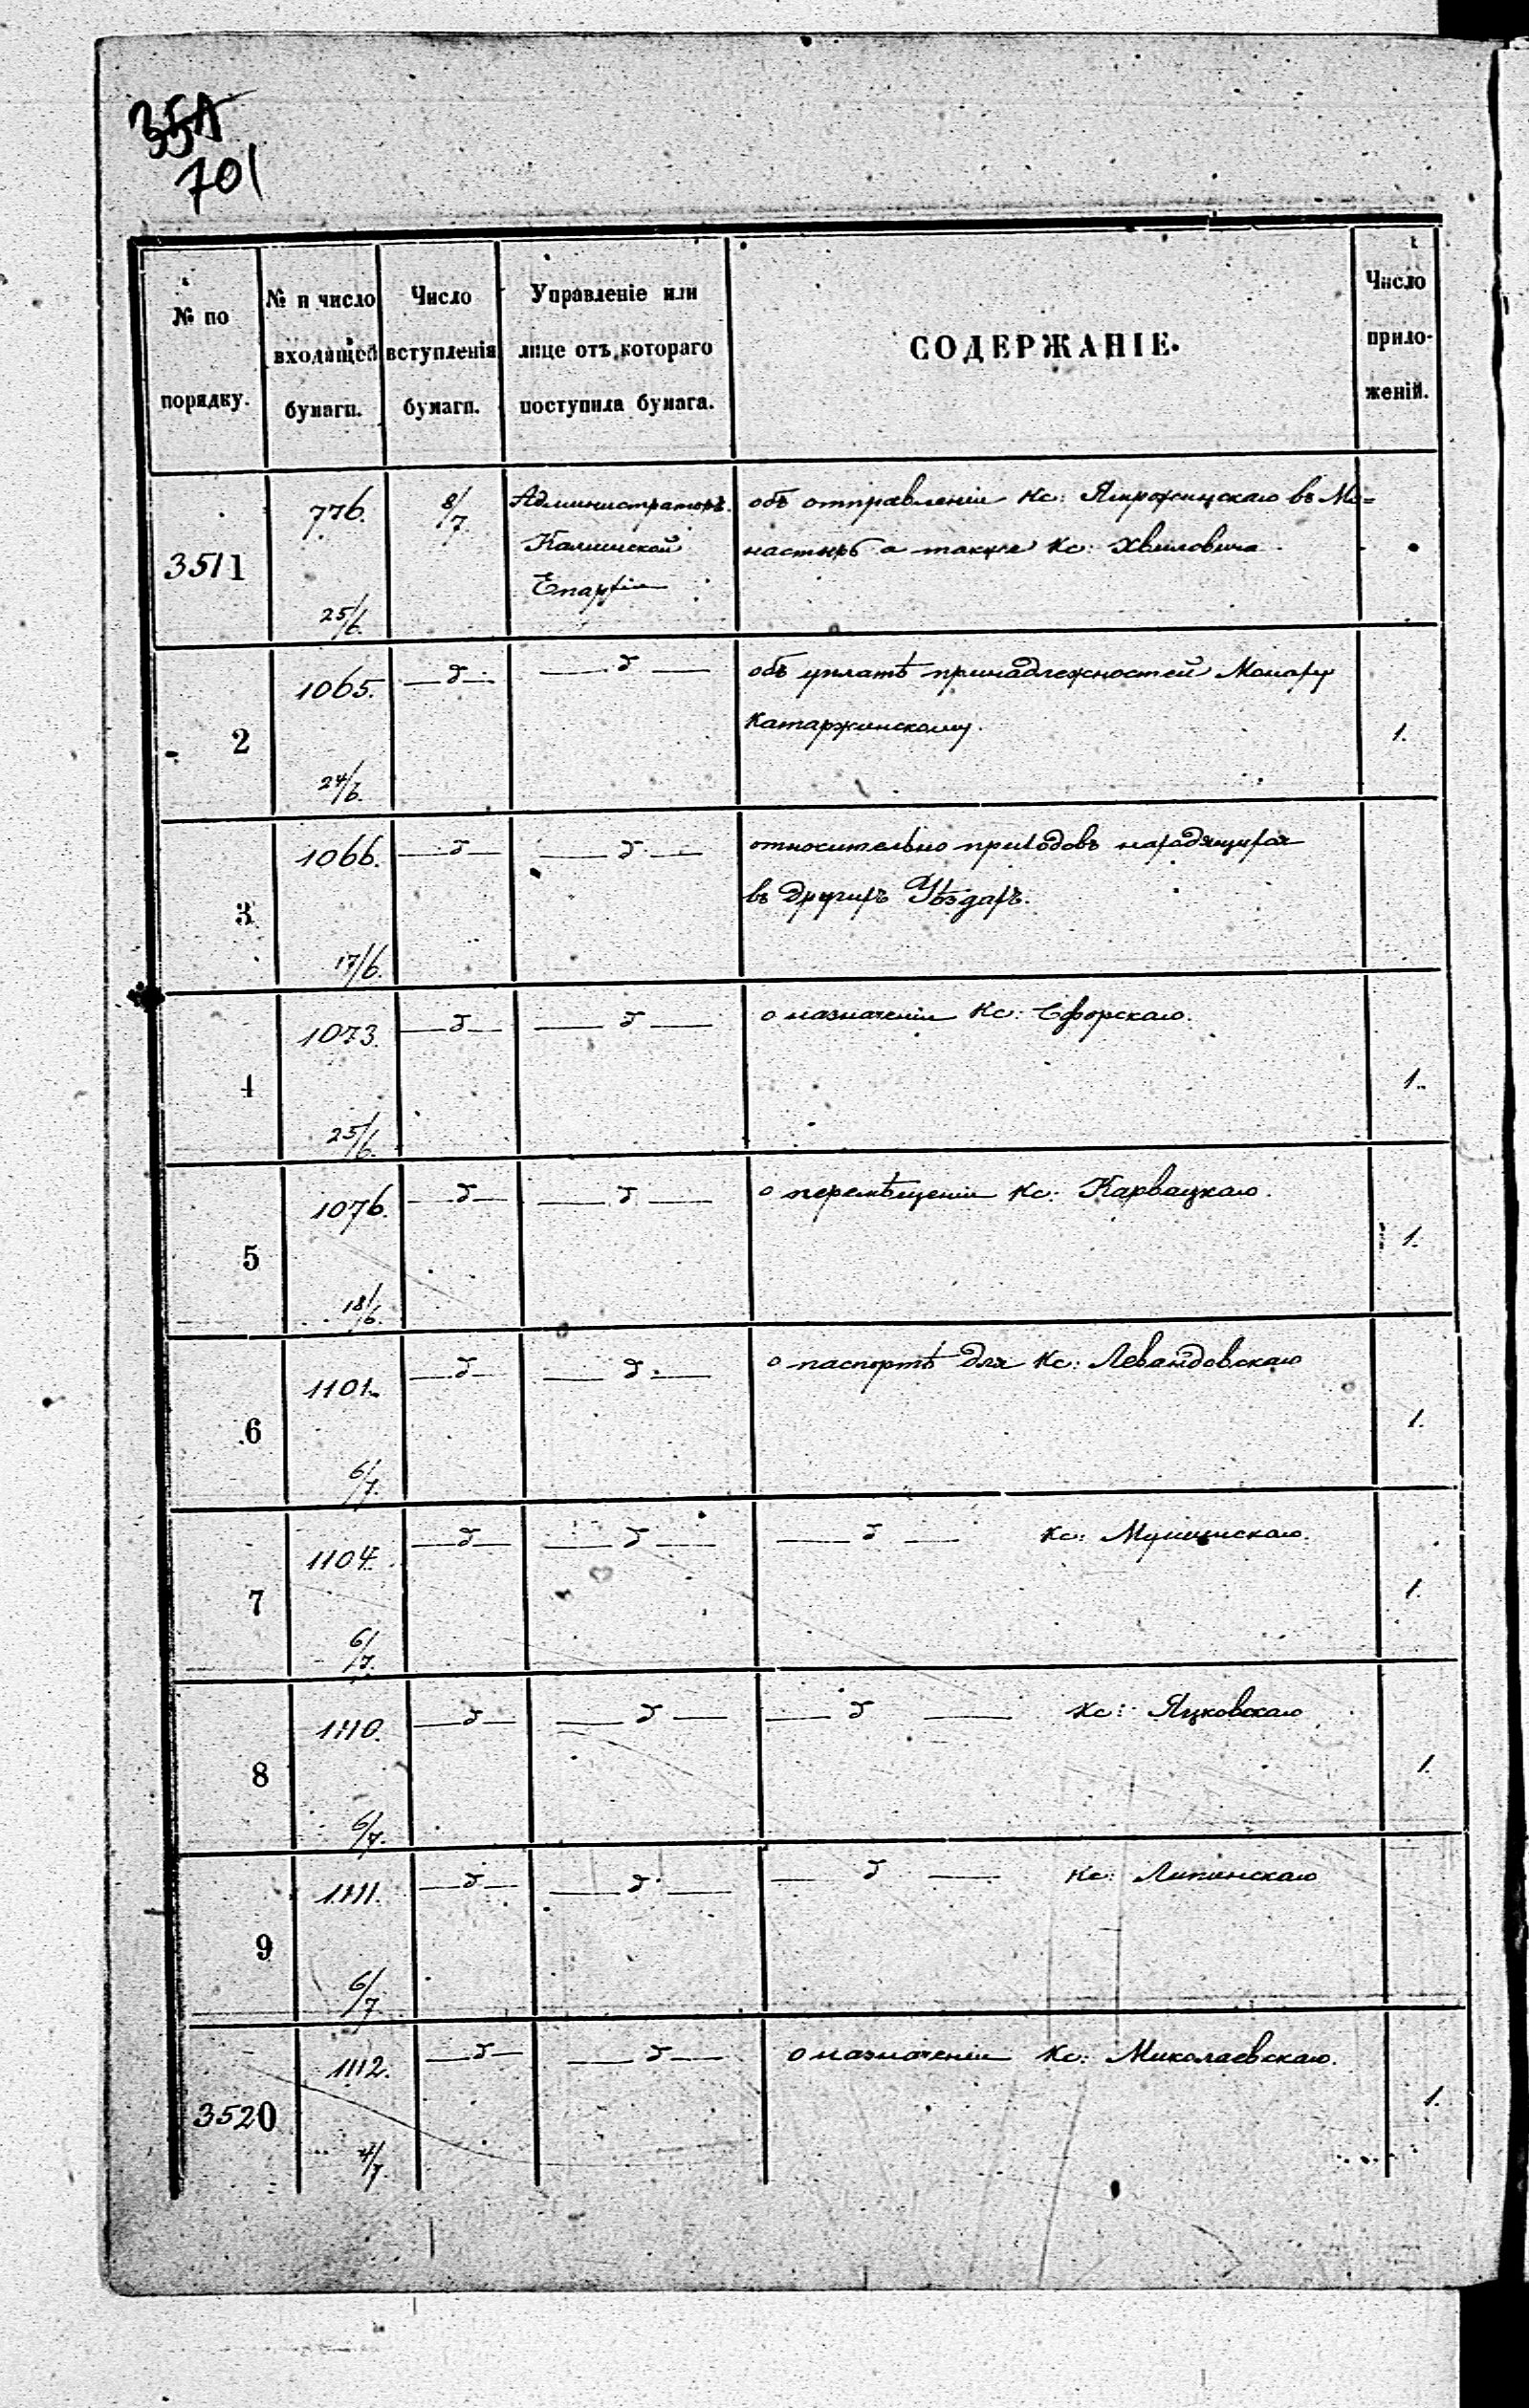 701
№ по порядку.
№ и число входящей бумаги.
Число вступленія бумаги.
Управленіе или лице отъ котораго поступила бумага.
СОДЕРЖАНІЕ.
Число прило-женій.
3511
776.
25/6.
8/7
Администраторъ
Калишской
Епархіи
объ отправленіи Кс: въ Мо=
настырь а также Кс: Хвиловича.
2
1065.
24/6.
— д —
— д —
объ уплатѣ принадлежностей Монаху
Катаржинскому.
1.
3
1066.
17/6.
— д —
— д —
относительно приходовъ находящихся
въ другихъ Уѣздахъ.
4
1073.
25/6.
— д —
— д —
о назначеніи Кс:
1.
5
1076.
18/6.
— д —
— д —
о перемѣщеніи Кс: Карвацкаго.
1.
6
1101.
6/7.
— д —
— д —
о паспортѣ для Кс: Левандовскаго
1.
7
1104.
6/7.
— д —
— д —
— д — Кс:
1.
8
1110.
6/7.
— д —
— д —
— д — Кс: Яцковскаго
1.
9
1111.
6/7
— д —
— д —
— д — Кс: Липинскаго
3520
1112.
4/7.
— д —
— д —
о назначеніи Кс: Миколаевскаго.
1.